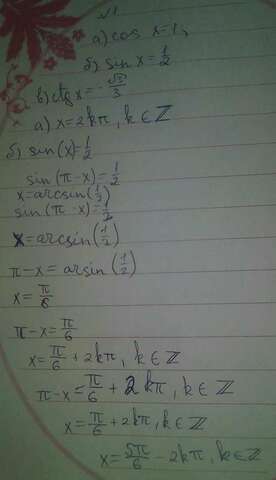 √1
а) cos x=1,
б) sin x=1/2
в) ctg x=-√3/3
а) x=2kπ, k∈ℤ
б) sin(x)=1/2
sin(π-x)=1/2
x=arcsin(1/2)
sin(π-x)=1/2
x=arcsin(1/2)
π-x=arsin(1/2)
x=π/6
π-x=π/6
x=π/6+2kπ, k∈ℤ
π-x=π/6+2kπ, k∈ℤ
x=π/6+2kπ, k∈ℤ
x=5π/6-2kπ, k∈ℤ